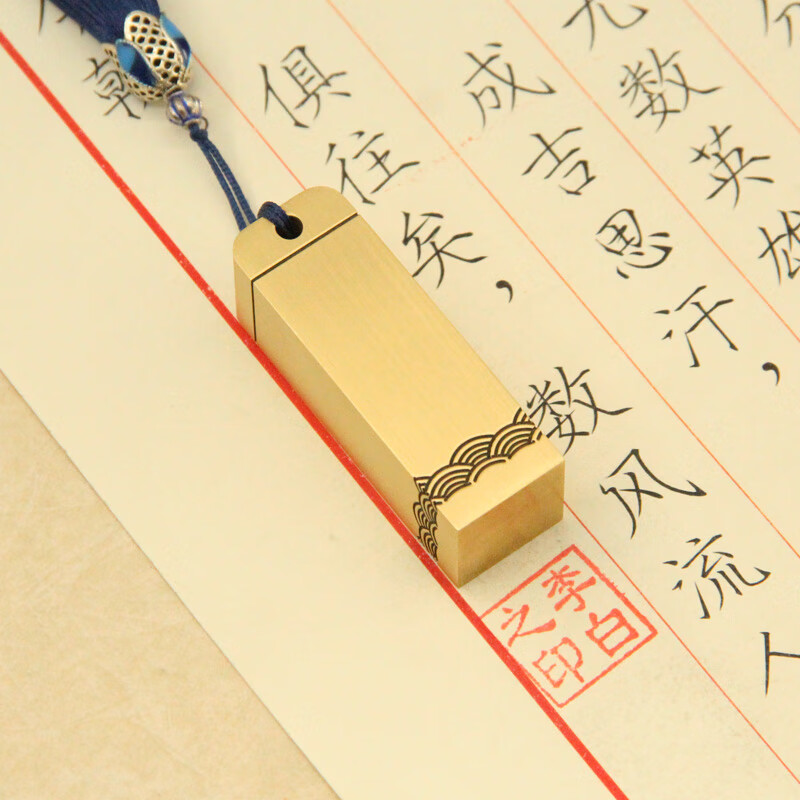 无数英雄
成吉思汗，
俱往矣，数风流人
李白
之印